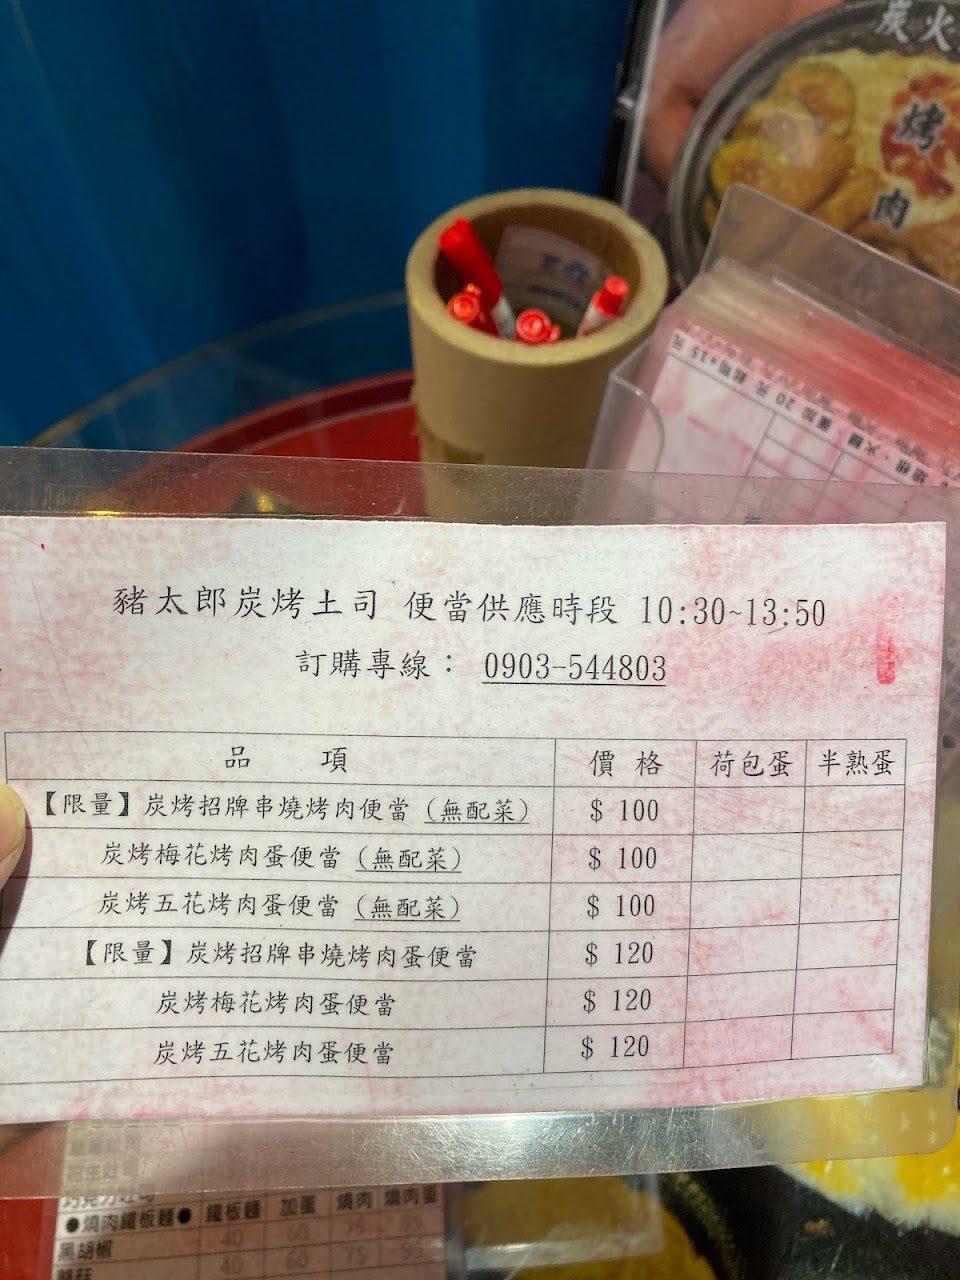 炭火
烤
肉
蛋加 20 元 起司+15 元
豬太郎炭烤土司 便當供應時段 10:30~13:50
訂購專線： 0903-544803
品 項 價 格 荷包蛋 半熟蛋
【限量】炭烤招牌串燒烤肉便當（無配菜） $ 100
炭烤梅花烤肉蛋便當（無配菜） $ 100
炭烤五花烤肉蛋便當（無配菜） $ 100
【限量】炭烤招牌串燒烤肉蛋便當 $ 120
炭烤梅花烤肉蛋便當 $ 120
炭烤五花烤肉蛋便當 $ 120
●燒肉鐵板麵● 鐵板麵 加蛋 燒肉 燒肉蛋
黑胡椒 40 60 75 95
蘑菇 40 60 75 95